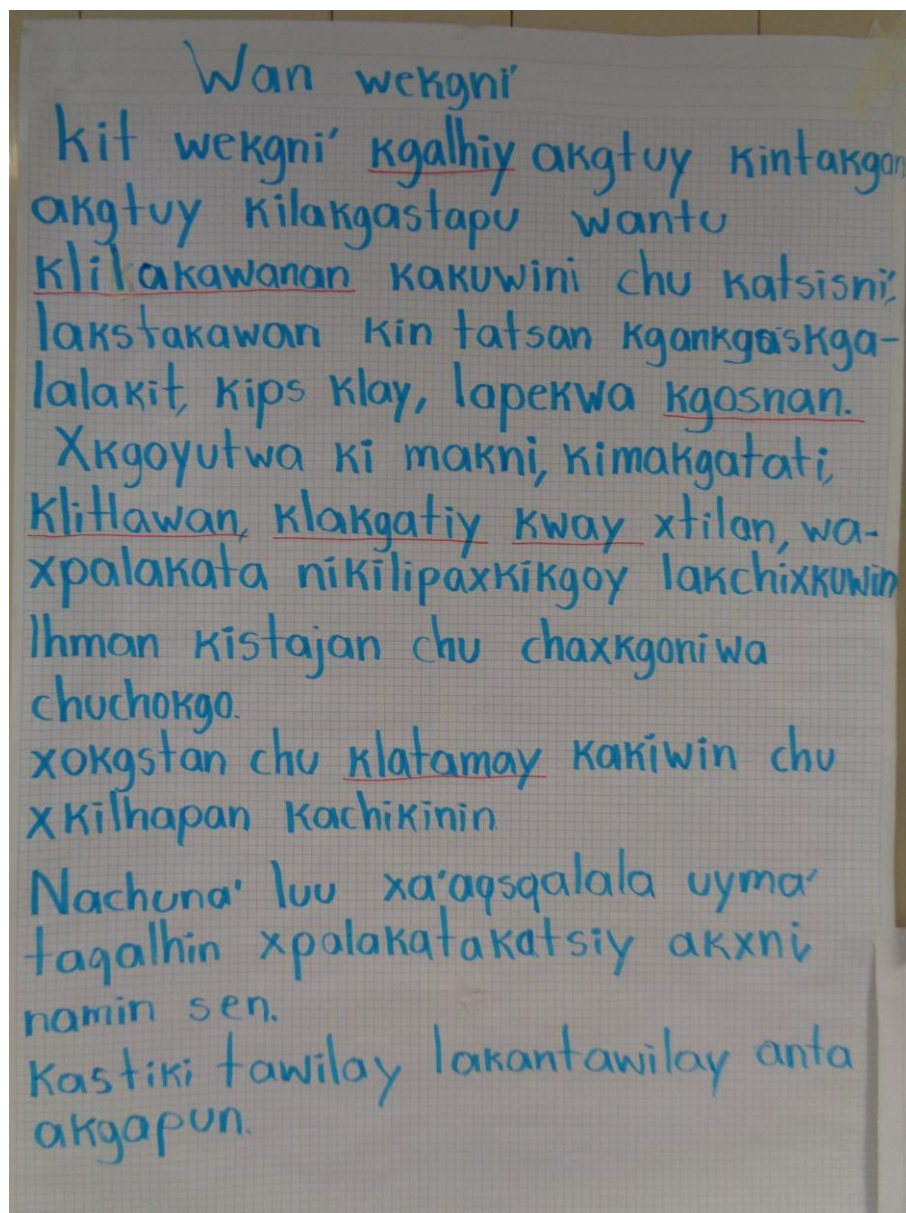 Wan wekgni'
kit wekgni' kgalhiy akgtuy kintakgan
akgtuy kilakgastapu wantu
klilakawanan kakuwini chu katsisni',
lakstakawan kin tatsan kgankgaskga-
lalakit, kips klay, lapekwa kgosnan.
Xkgoyutwa ki makni, kimakgatati,
klitlawan, klakgatiy kway xtilan, wa-
xpalakata nikilipaxkikgoy lakchixkuwin
lhman kistajan chu chaxkgoniwa
chuchokgo.
xokgstan chu klatamay kakiwin chu
xkilhapan kachikinin
Nachuna' luu xa'aqsqalala uyma'
taqalhin xpalakatakatsiy akxni
namin sen.
Kastiki tawilay lakantawilay anta
akgapun.